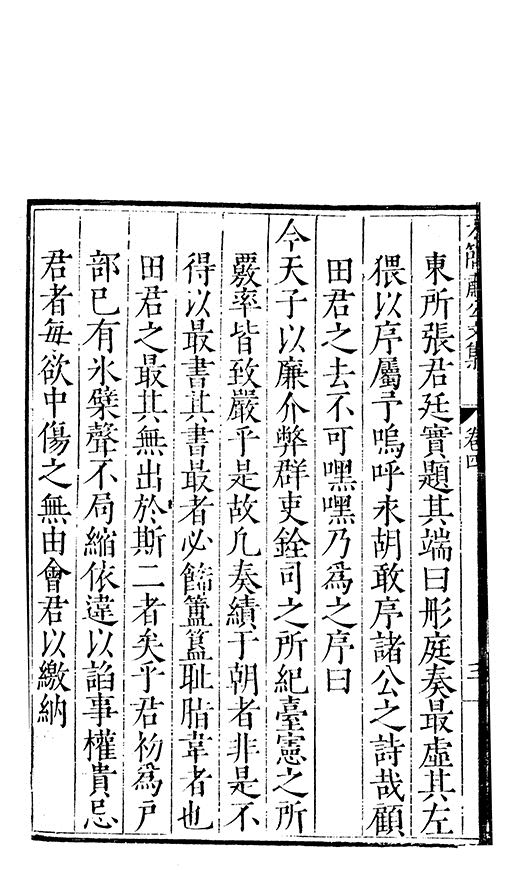 簡肅公文集 卷四 三
東所張君廷實題其端曰形庭奏最虛其左
猥以序屬予嗚呼永胡敢序諸公之詩哉顧
田君之去不可嘿嘿乃爲之序曰
今天子以廉介弊群吏銓司之所紀臺憲之所
覈率皆致嚴乎是故凢奏績于朝者非是不
得以最書其書最者必飭簠簋耻脂韋者也
田君之最其無出於斯二者矣乎君初爲戶
部已有氷檗聲不局縮依違以謟事權貴忌
君者每欲中傷之無由會君以繳納